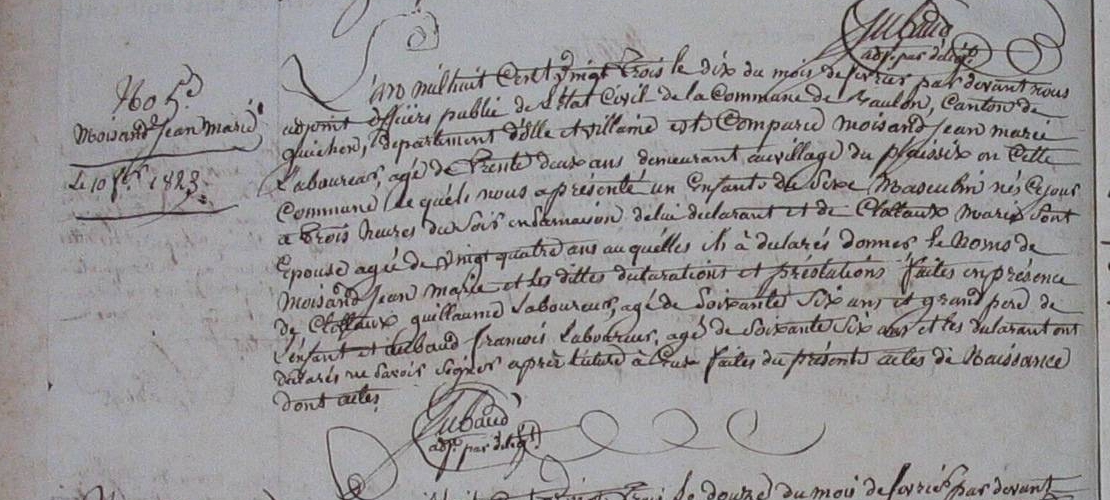 Aubaud
adj. par délég.
No 5.e
Moisand Jean Marie
Le 10 f.er 1823.
L'an mil huit Cent Vingt Trois le dix du mois de fevrier par devant nous
adjoint officiers publié de L'Etat Civil de la Commune de Baulon, Canton de
Guichen, département D'ille et villaine est Comparu Moisand Jean marie
Laboureur, agé de Trente deux ans demeurant au village du plaissix en Cette
Commune Le quéls nous a présenté un Enfants du Sexe Masculin nés Ce jour
a Trois heures du Soir en Samaison de lui declarant et de Clollaux Marie Sont
Epouse agé de vingt quatre ans au quélles ils à duclarés donner le Noms de
Moisand Jean Marie et les dittes duclarations et préstations faites en présence
de Clollaux guillaume Laboureur, agé de Soixante Six ans et grand pere de
L'enfant et Aubaud francois Laboureur, agé de Soixante Six ans et les duclarant ont
duclarés ne Savoir Signer après Lecture à Eux faites du présente actes de Naissance
dont actes
Aubaud
adj. par délég.
Trois le douze du mois de fevrier par devant